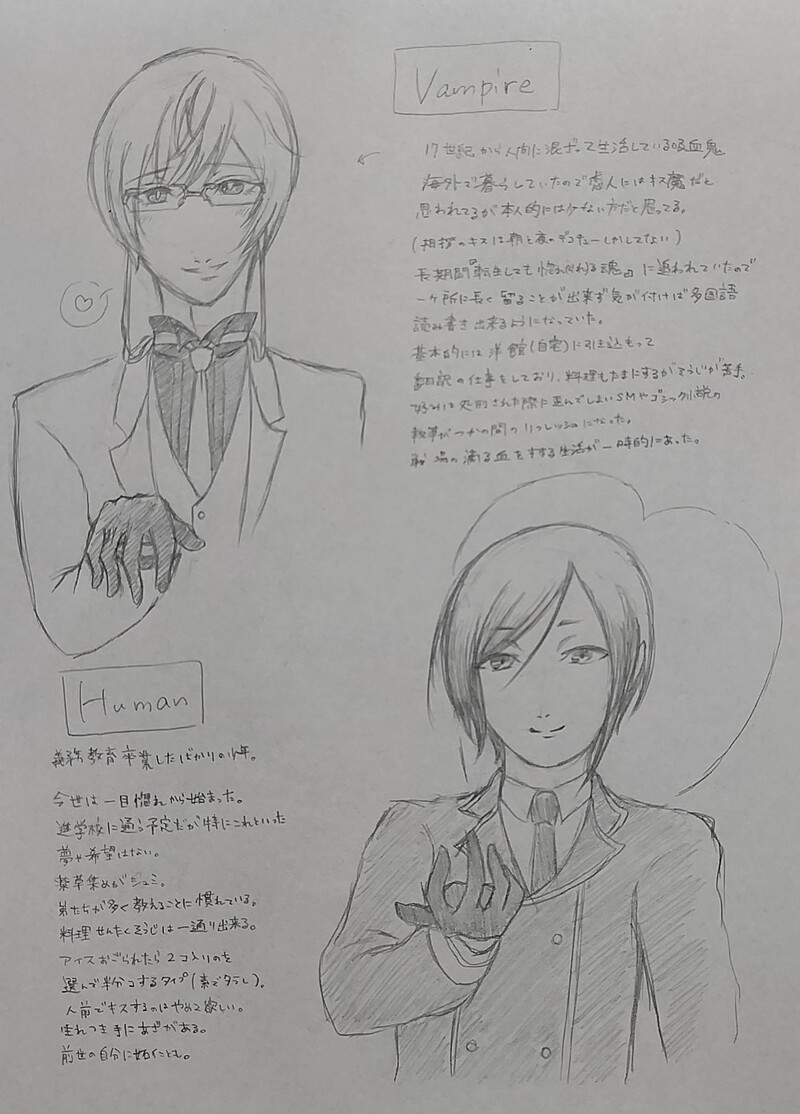 Vampire
17世紀から人間に混ざって生活している吸血鬼
海外で暮らしていたので恋人にはキス魔だと
思われてるが本人的には少ない方だと思ってる。
(挨拶のキスは朝と夜のデコチューしかしてない)
長期間『転生しても惚れられる魂』に追われていたので
一ヶ所に長く留ることが出来ず気が付けば多国語
読み書き出来るようになっていた。
基本的には洋館(自宅)に引き込もって
翻訳の仕事をしており、料理もたまにするがそうじが苦手。
処刑された際に歪んでしまいSMやゴシック小説の
執筆がつかの間のリフレッシュになった。
滴る血をすする生活が一時的にあった。
Human
義務教育卒業したばかりの少年。
今世は一目惚れから始まった。
進学校に通う予定だが特にこれといった
夢や希望はない。
薬草集めがシュミ。
弟たちが多く教えることに慣れている。
料理せんたくそうじは一通り出来る。
アイスおごられたら2コ入りのを
選んで半分コするタイプ(素でタラし)。
人前でキスするのはやめて欲しい。
生れつき手にあざがある。
前世の自分に妬くことも。